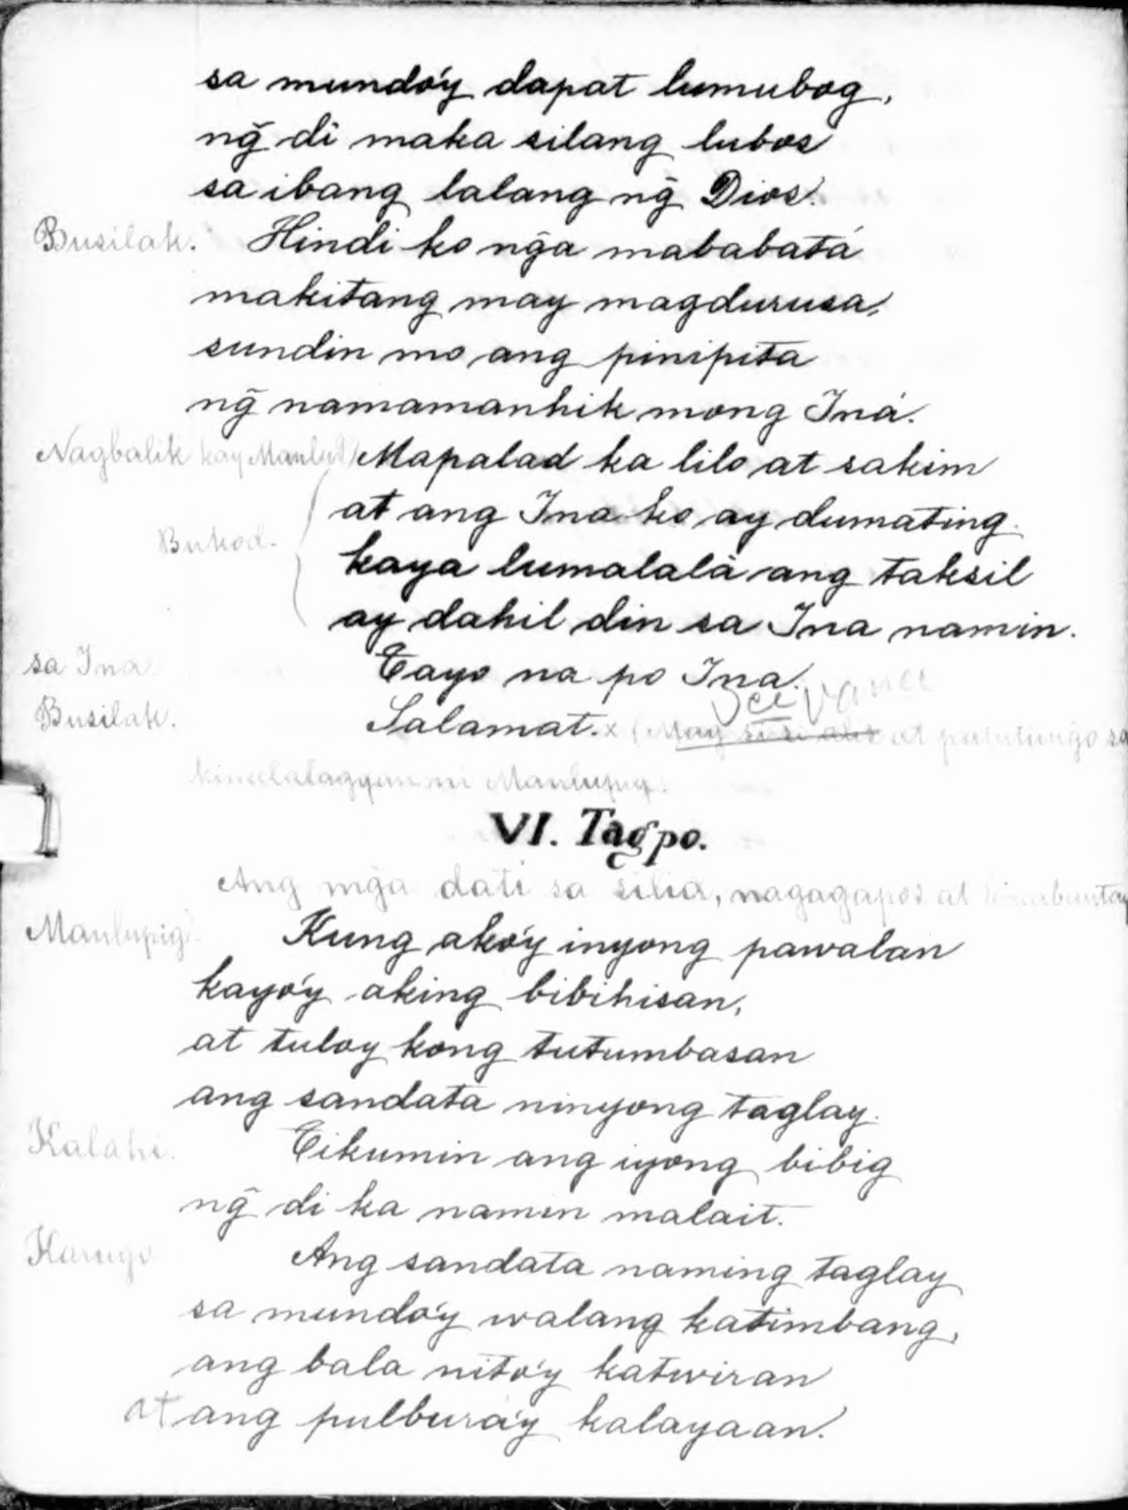 sa mundo'y dapat lumubog,
ng̃ di maka silang lubos
sa ibang lalang ng̃ Dios.
Busilak. Hindi ko ng̃a mababatá
makitang may magdurusa,
sundin mo ang pinipita
ng̃ namamanhik mong Iná.
Nagbalik kay Manlupig Mapalad ka lilo at sakim
at ang Ina ko ay dumating.
Bukod. kaya lumalalà ang taksil
ay dahil din sa Ina namin.
sa Ina Tayo na po Ina.
Busilak. Salamat. x (May at patutung̃o sa
kinalalagyan ni Manlupig.
VI. Tagpo.
Ang mg̃a dati sa silid, nagagapos at
Manlupig Kung ako'y inyong pawalan
kayo'y aking bibihisan,
at tuloy kong tutumbasan
ang sandata ninyong taglay.
Kalahi. Tikumin ang iyong bibig
ng̃ di ka namin malait.
Ang sandata naming taglay
sa mundo'y walang katimbang,
ang bala nito'y katwiran
at ang pulbura'y kalayaan.